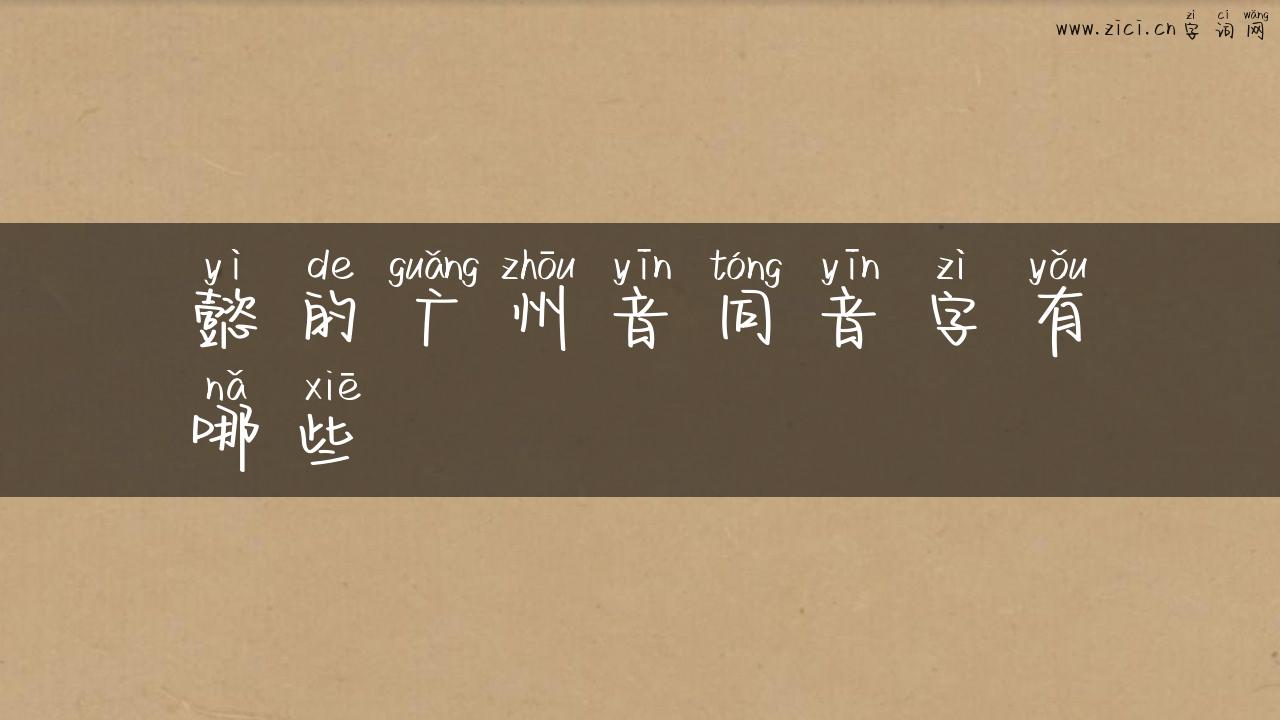 zì cí wǎng
www.zici.cn 字词网
yì de guǎng zhōu yīn tóng yīn zì yǒu
懿的广州音同音字有
nǎ xiē
哪些